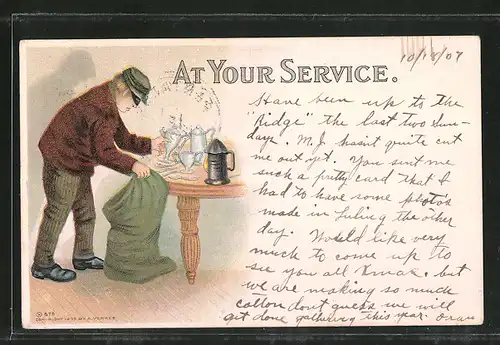 AT YOUR SERVICE.
10/18/07
Have been up to the
"Ridge" the last two Sun-
days. M.J. hasn't quite cut
me out yet. You sent me
such a pretty card that I
had to have some photos
made in the other
day. Would like very
much to come up to
see you all Xmas. but
we are making so much
cotton dont guess we will
get done gathering this year.